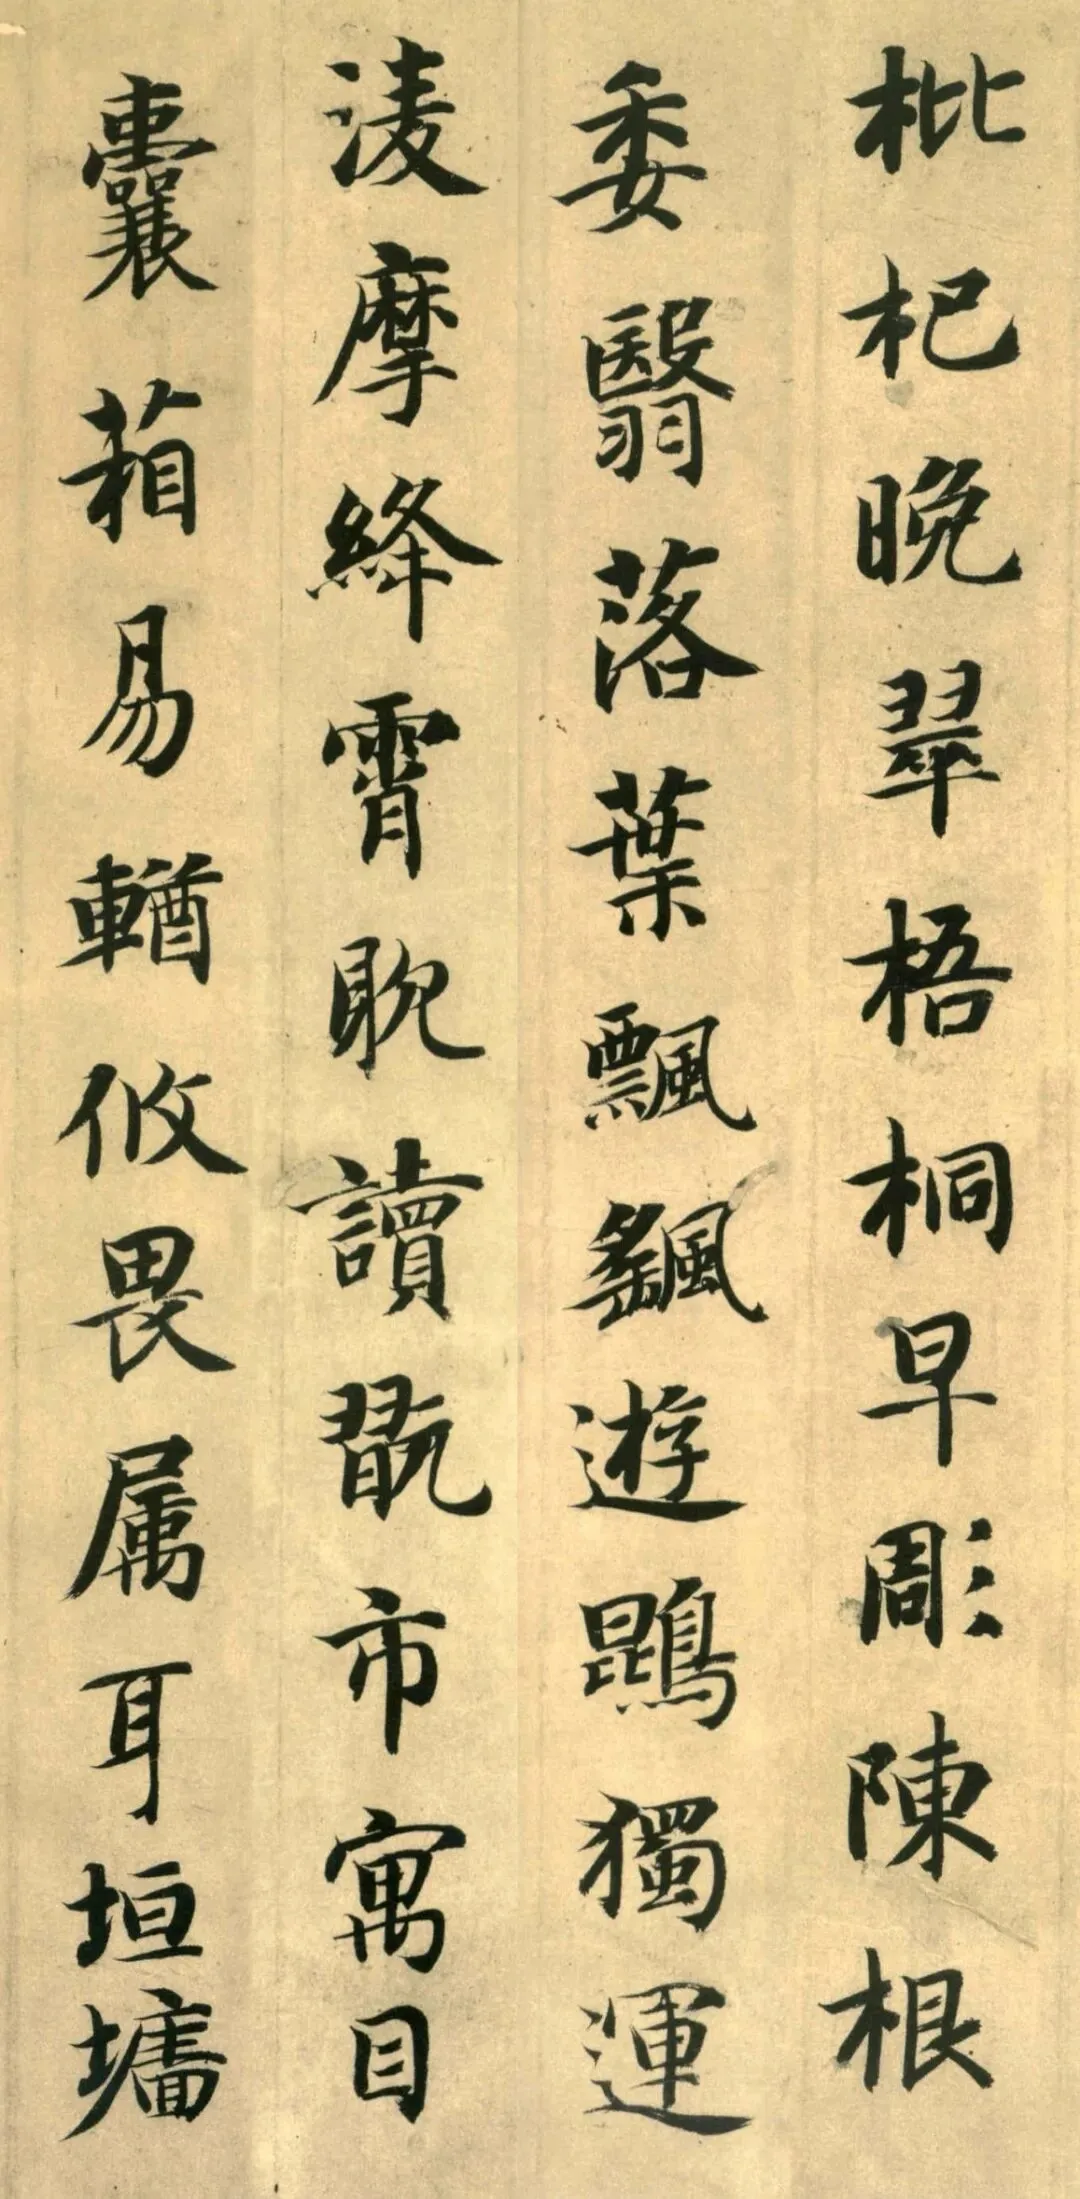 枇杷晚翠梧桐早彫陳根
委翳落葉飄颻遊鵾獨運
淩摩絳霄耽讀翫市寓目
囊箱易輶攸畏属耳垣墻